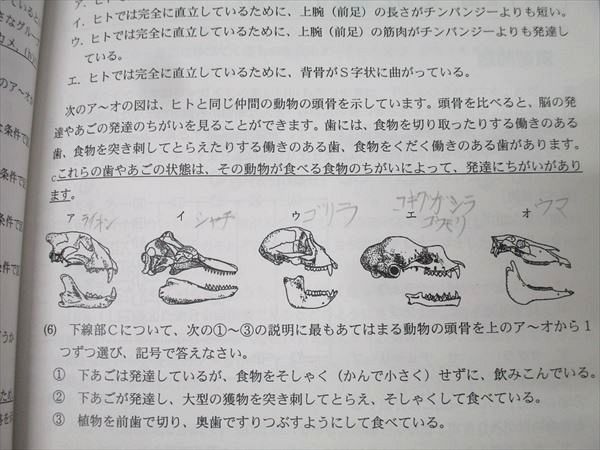 イ. ヒトでは完全に直立しているために、上腕（前足）の長さがチンパンジーよりも短い。
ウ. ヒトでは完全に直立しているために、上腕（前足）の筋肉がチンパンジーよりも発達し
ている。
エ. ヒトでは完全に直立しているために、背骨がS字状に曲がっている。
次のア～オの図は、ヒトと同じ仲間の動物の頭骨を示しています。頭骨を比べると、脳の発
達やあごの発達のちがいを見ることができます。歯には、食物を切り取ったりする働きのある
歯、食物を突き刺してとらえたりする働きのある歯、食物をくだく働きのある歯があります。
cこれらの歯やあごの状態は、その動物が食べる食物のちがいによって、発達にちがいがあり
ます。
ア ライオン イ シャチ ウ ゴリラ エ オ ウマ
(6) 下線部Cについて、次の①～③の説明に最もあてはまる動物の頭骨を上のア～オから1
つずつ選び、記号で答えなさい。
① 下あごは発達しているが、食物をそしゃく（かんで小さく）せずに、飲みこんでいる。
② 下あごが発達し、大型の獲物を突き刺してとらえ、そしゃくして食べている。
③ 植物を前歯で切り、奥歯ですりつぶすようにして食べている。